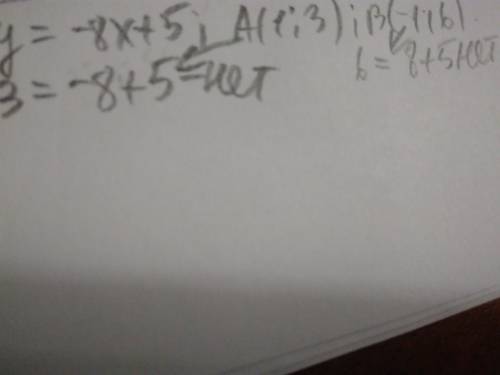 y = -8x+5; A(1;3); B(-1;6).
3 = -8+5 - нет
6 = 8+5 нет